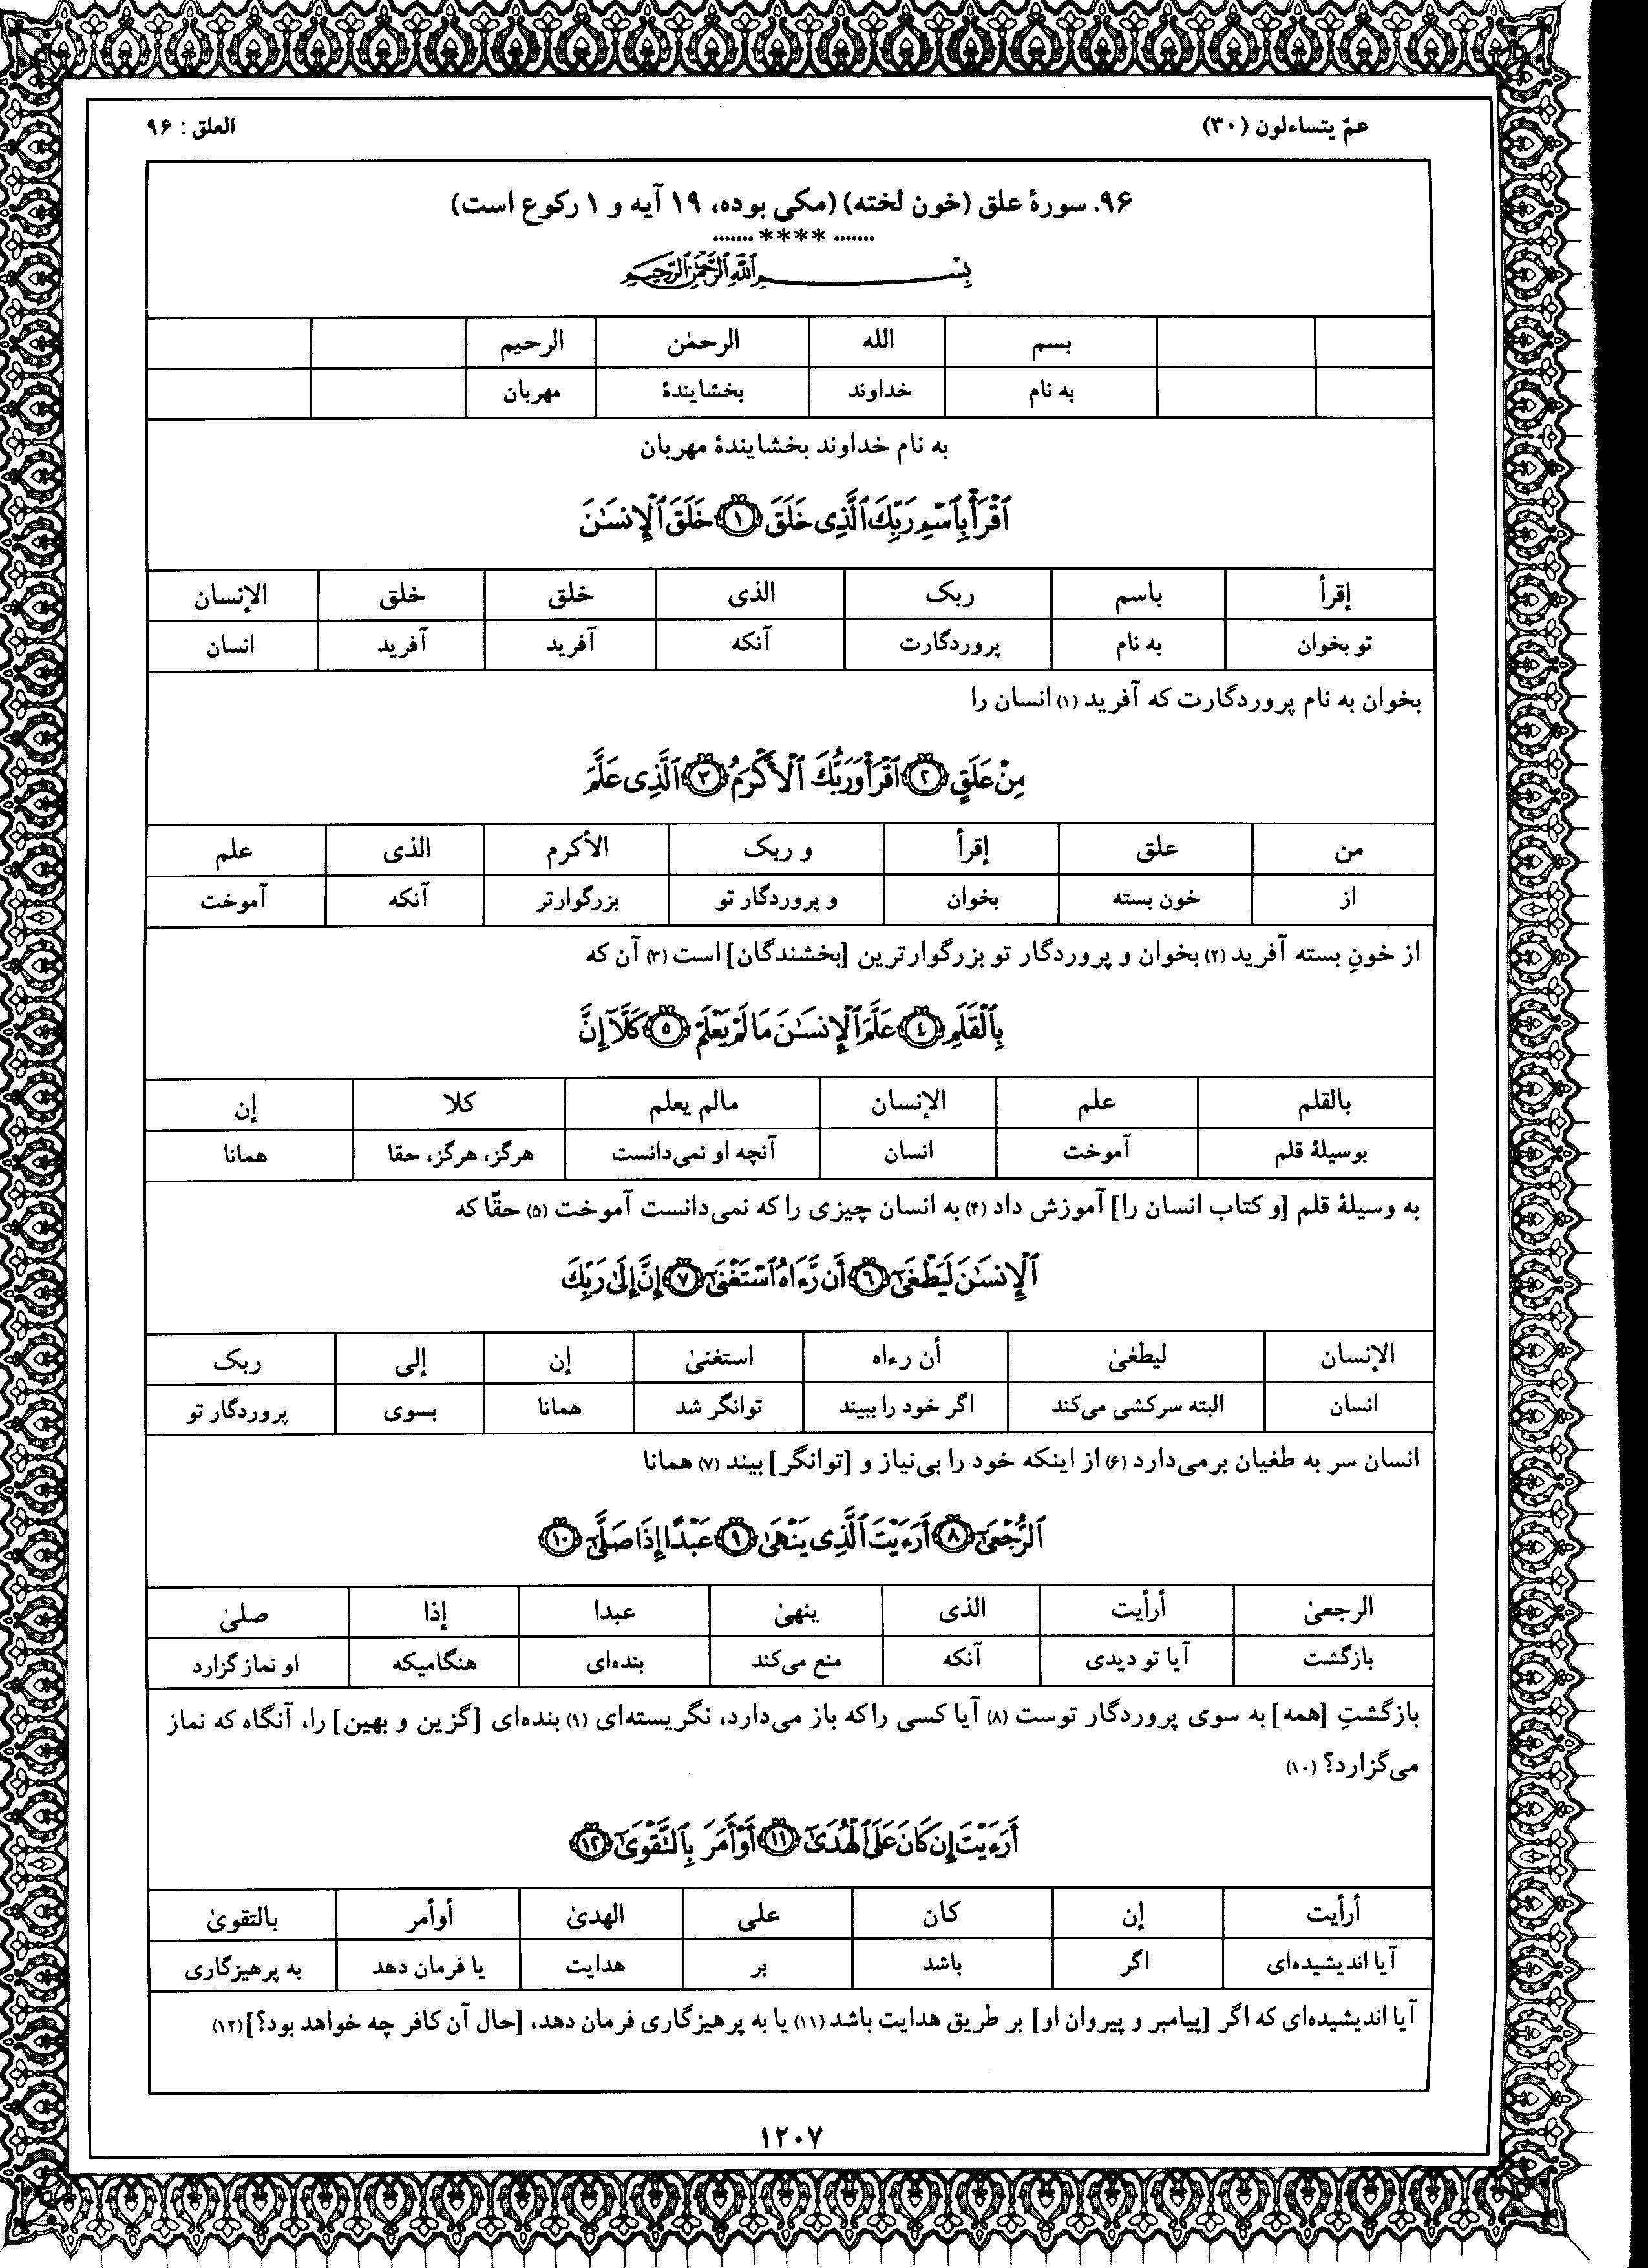 عمّ یتساءلون (۳۰)
العلق : ۹۶
۹۶. سورهٔ علق (خون لخته) (مکی بوده، ۱۹ آیه و ۱ رکوع است)
....... **** .......
بِسْمِ ٱللَّهِ ٱلرَّحْمَٰنِ ٱلرَّحِيمِ
بسم الله الرحمٰن الرحیم
به نام خداوند بخشایندهٔ مهربان
به نام خداوند بخشایندهٔ مهربان
ٱقْرَأْ بِٱسْمِ رَبِّكَ ٱلَّذِى خَلَقَ ١ خَلَقَ ٱلْإِنسَـٰنَ
إقرأ باسم ربک الذی خلق خلق الإنسان
تو بخوان به نام پروردگارت آنکه آفرید آفرید انسان
بخوان به نام پروردگارت که آفرید (۱) انسان را
مِنْ عَلَقٍ ٢ ٱقْرَأْ وَرَبُّكَ ٱلْأَكْرَمُ ٣ ٱلَّذِى عَلَّمَ
من علق إقرأ و ربک الأکرم الذی علم
از خون بسته بخوان و پروردگار تو بزرگوارتر آنکه آموخت
از خونِ بسته آفرید (۲) بخوان و پروردگار تو بزرگوارترین [بخشندگان] است (۳) آن که
بِٱلْقَلَمِ ٤ عَلَّمَ ٱلْإِنسَـٰنَ مَا لَمْ يَعْلَمْ ٥ كَلَّآ إِنَّ
بالقلم علم الإنسان مالم یعلم کلا إن
بوسیلهٔ قلم آموخت انسان آنچه او نمی‌دانست هرگز، هرگز، حقا همانا
به وسیلهٔ قلم [و کتاب انسان را] آموزش داد (۴) به انسان چیزی را که نمی‌دانست آموخت (۵) حقّا که
ٱلْإِنسَـٰنَ لَيَطْغَىٰٓ ٦ أَن رَّءَاهُ ٱسْتَغْنَىٰٓ ٧ إِنَّ إِلَىٰ رَبِّكَ
الإنسان لیطغیٰ أن رءاه استغنیٰ إن إلی ربک
انسان البته سرکشی می‌کند اگر خود را ببیند توانگر شد همانا بسوی پروردگار تو
انسان سر به طغیان برمی‌دارد (۶) از اینکه خود را بی‌نیاز و [توانگر] بیند (۷) همانا
ٱلرُّجْعَىٰٓ ٨ أَرَءَيْتَ ٱلَّذِى يَنْهَىٰ ٩ عَبْدًا إِذَا صَلَّىٰٓ ١٠
الرجعیٰ أرأیت الذی ینهیٰ عبدا إذا صلیٰ
بازگشت آیا تو دیدی آنکه منع می‌کند بنده‌ای هنگامیکه او نماز گزارد
بازگشتِ [همه] به سوی پروردگار توست (۸) آیا کسی را که باز می‌دارد، نگریسته‌ای (۹) بنده‌ای [گزین و بهین] را، آنگاه که نماز
می‌گزارد؟ (۱۰)
أَرَءَيْتَ إِن كَانَ عَلَى ٱلْهُدَىٰٓ ١١ أَوْ أَمَرَ بِٱلتَّقْوَىٰٓ ١٢
أرأیت إن کان علی الهدیٰ أوأمر بالتقویٰ
آیا اندیشیده‌ای اگر باشد بر هدایت یا فرمان دهد به پرهیزگاری
آیا اندیشیده‌ای که اگر [پیامبر و پیروان او] بر طریق هدایت باشد (۱۱) یا به پرهیزگاری فرمان دهد، [حال آن کافر چه خواهد بود؟] (۱۲)
۱۲۰۷